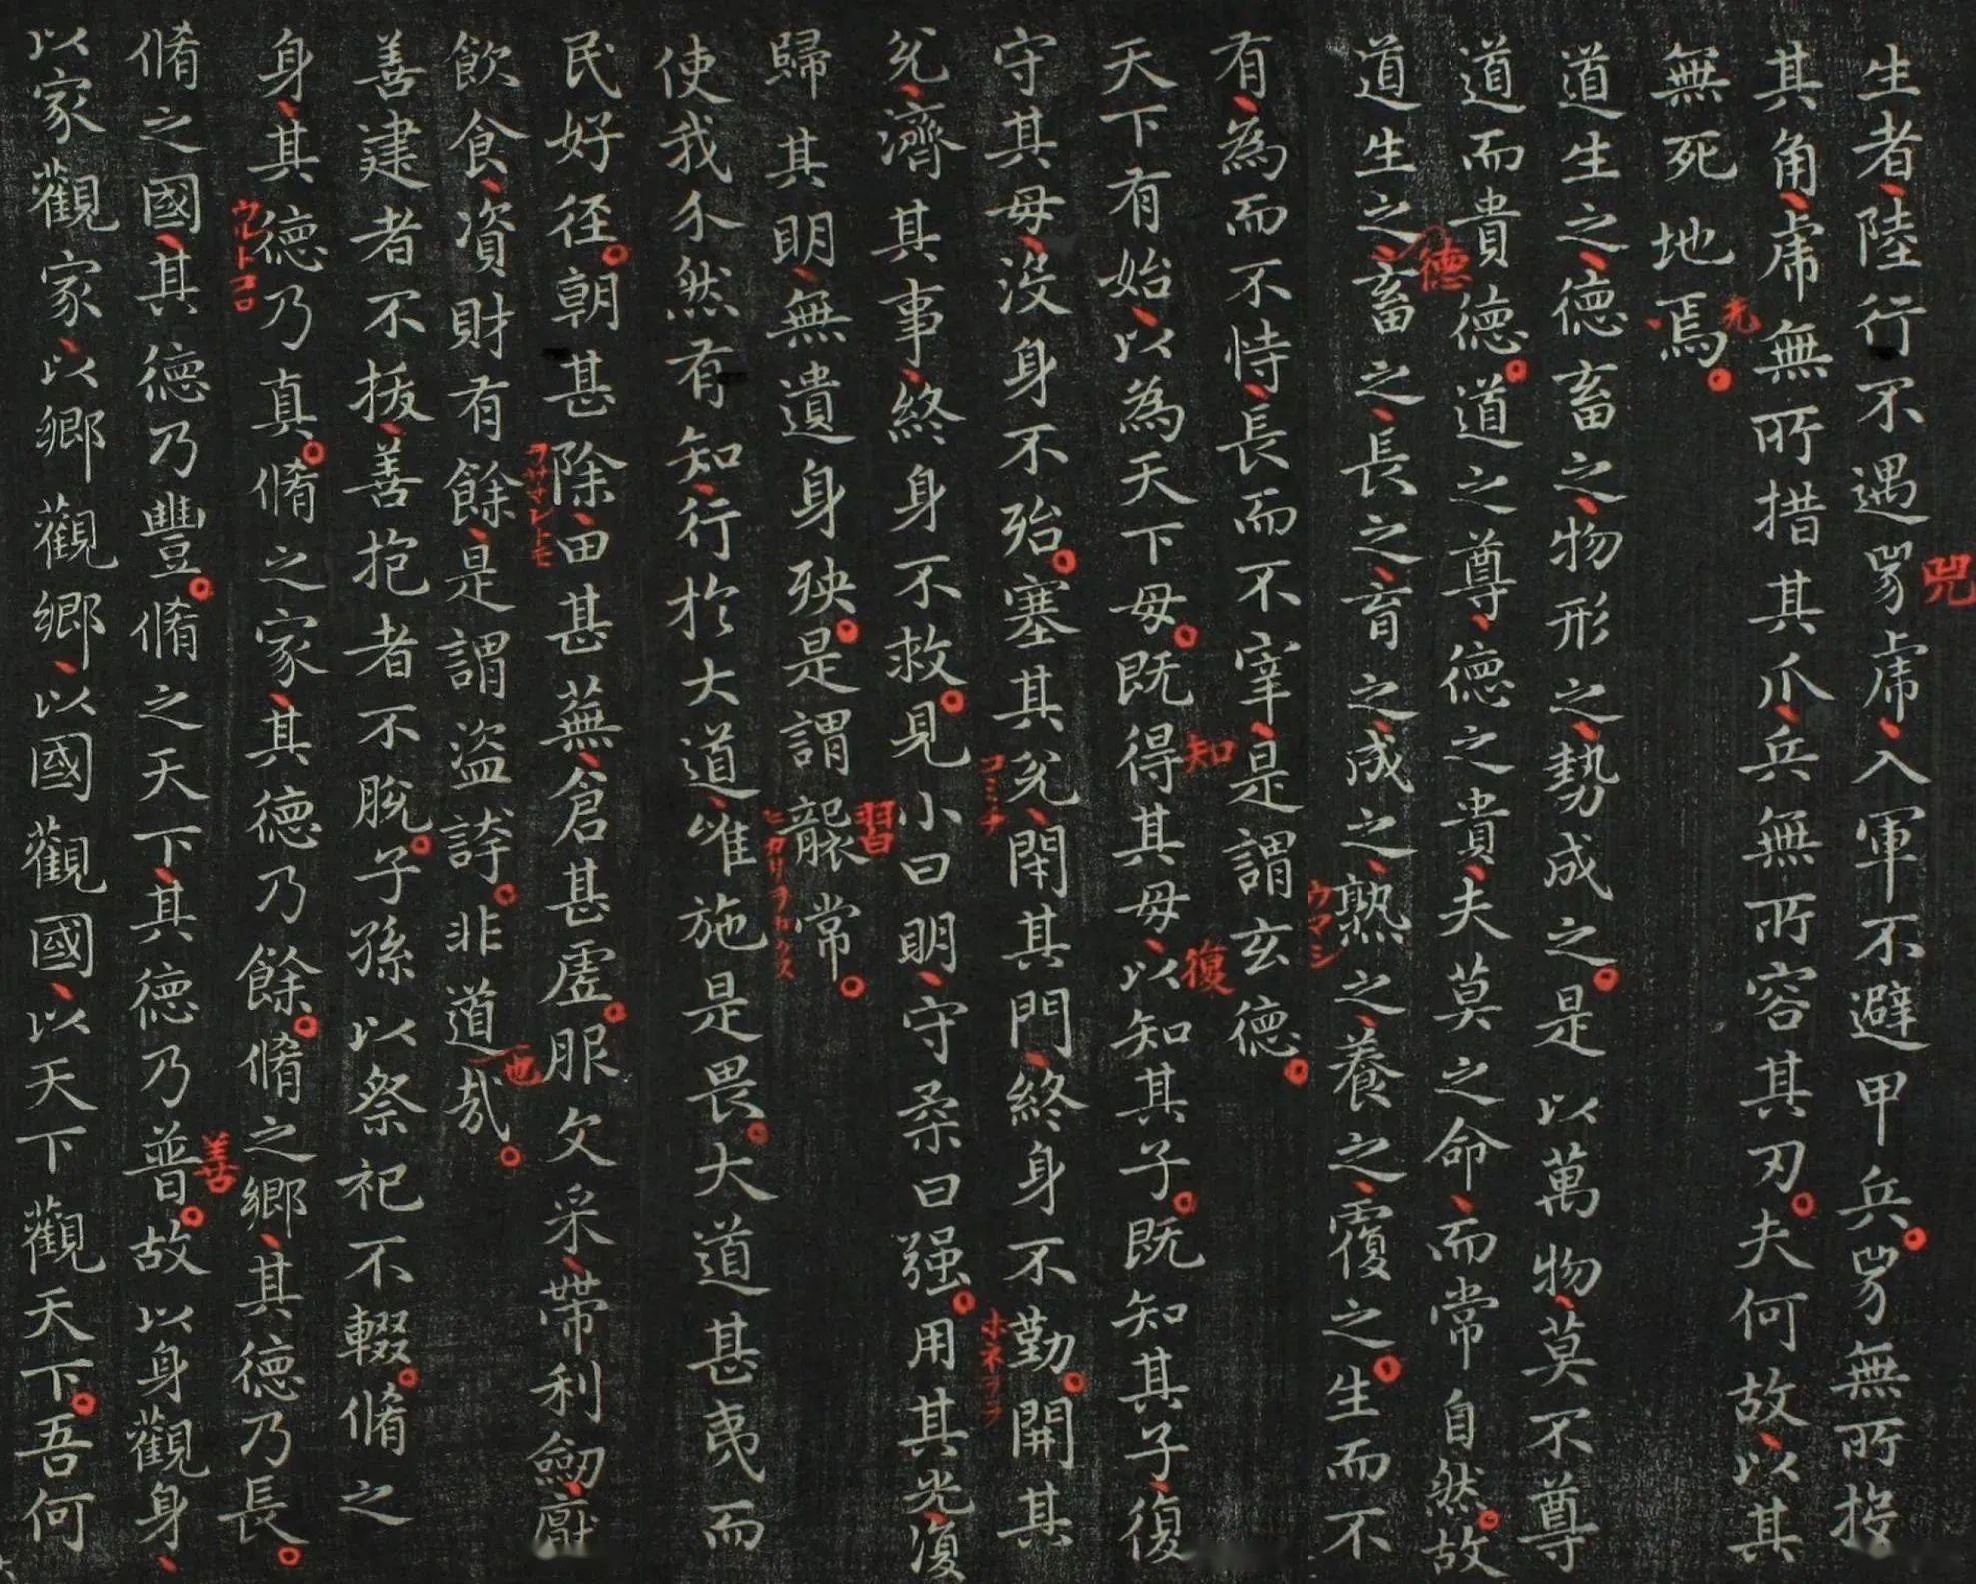 生者、陸行不遇兕虎、入軍不避甲兵。兕無所投
兕
其角、虎無所措其爪、兵無所容其刃。夫何故、以其
無死地焉。
道生之、德畜之、物形之、勢成之。是以萬物、莫不尊
道而貴德。道之尊、德之貴、夫莫之命、而常自然。故
德
道生之、畜之、長之、育之、成之、熟之、養之、覆之。生而不
ウマシ
有、為而不恃、長而不宰、是謂玄德。
天下有始、以為天下母。既得其母、以知其子。既知其子、復
知
復
守其母、没身不殆。塞其兌、閉其門、終身不勤。開其
兌、濟其事、終身不救。見小曰明、守柔曰强。用其光、復
コミチ
歸其明、無遺身殃。是謂襲常。
習
使我介然有知、行於大道、唯施是畏。大道甚夷而
民好径。朝甚除、田甚蕪、倉甚虛。服文采、帶利劒、厭
飲食、資財有餘、是謂盗誇。非道哉。
也
ヲサマレトモ
善建者不拔、善抱者不脫。子孫以祭祀不輟。脩之
身、其德乃真。脩之家、其德乃餘。脩之鄉、其德乃長。
ウルトコロ
脩之國、其德乃豐。脩之天下、其德乃普。故以身觀身、
善
以家觀家、以鄉觀鄉、以國觀國、以天下觀天下。吾何